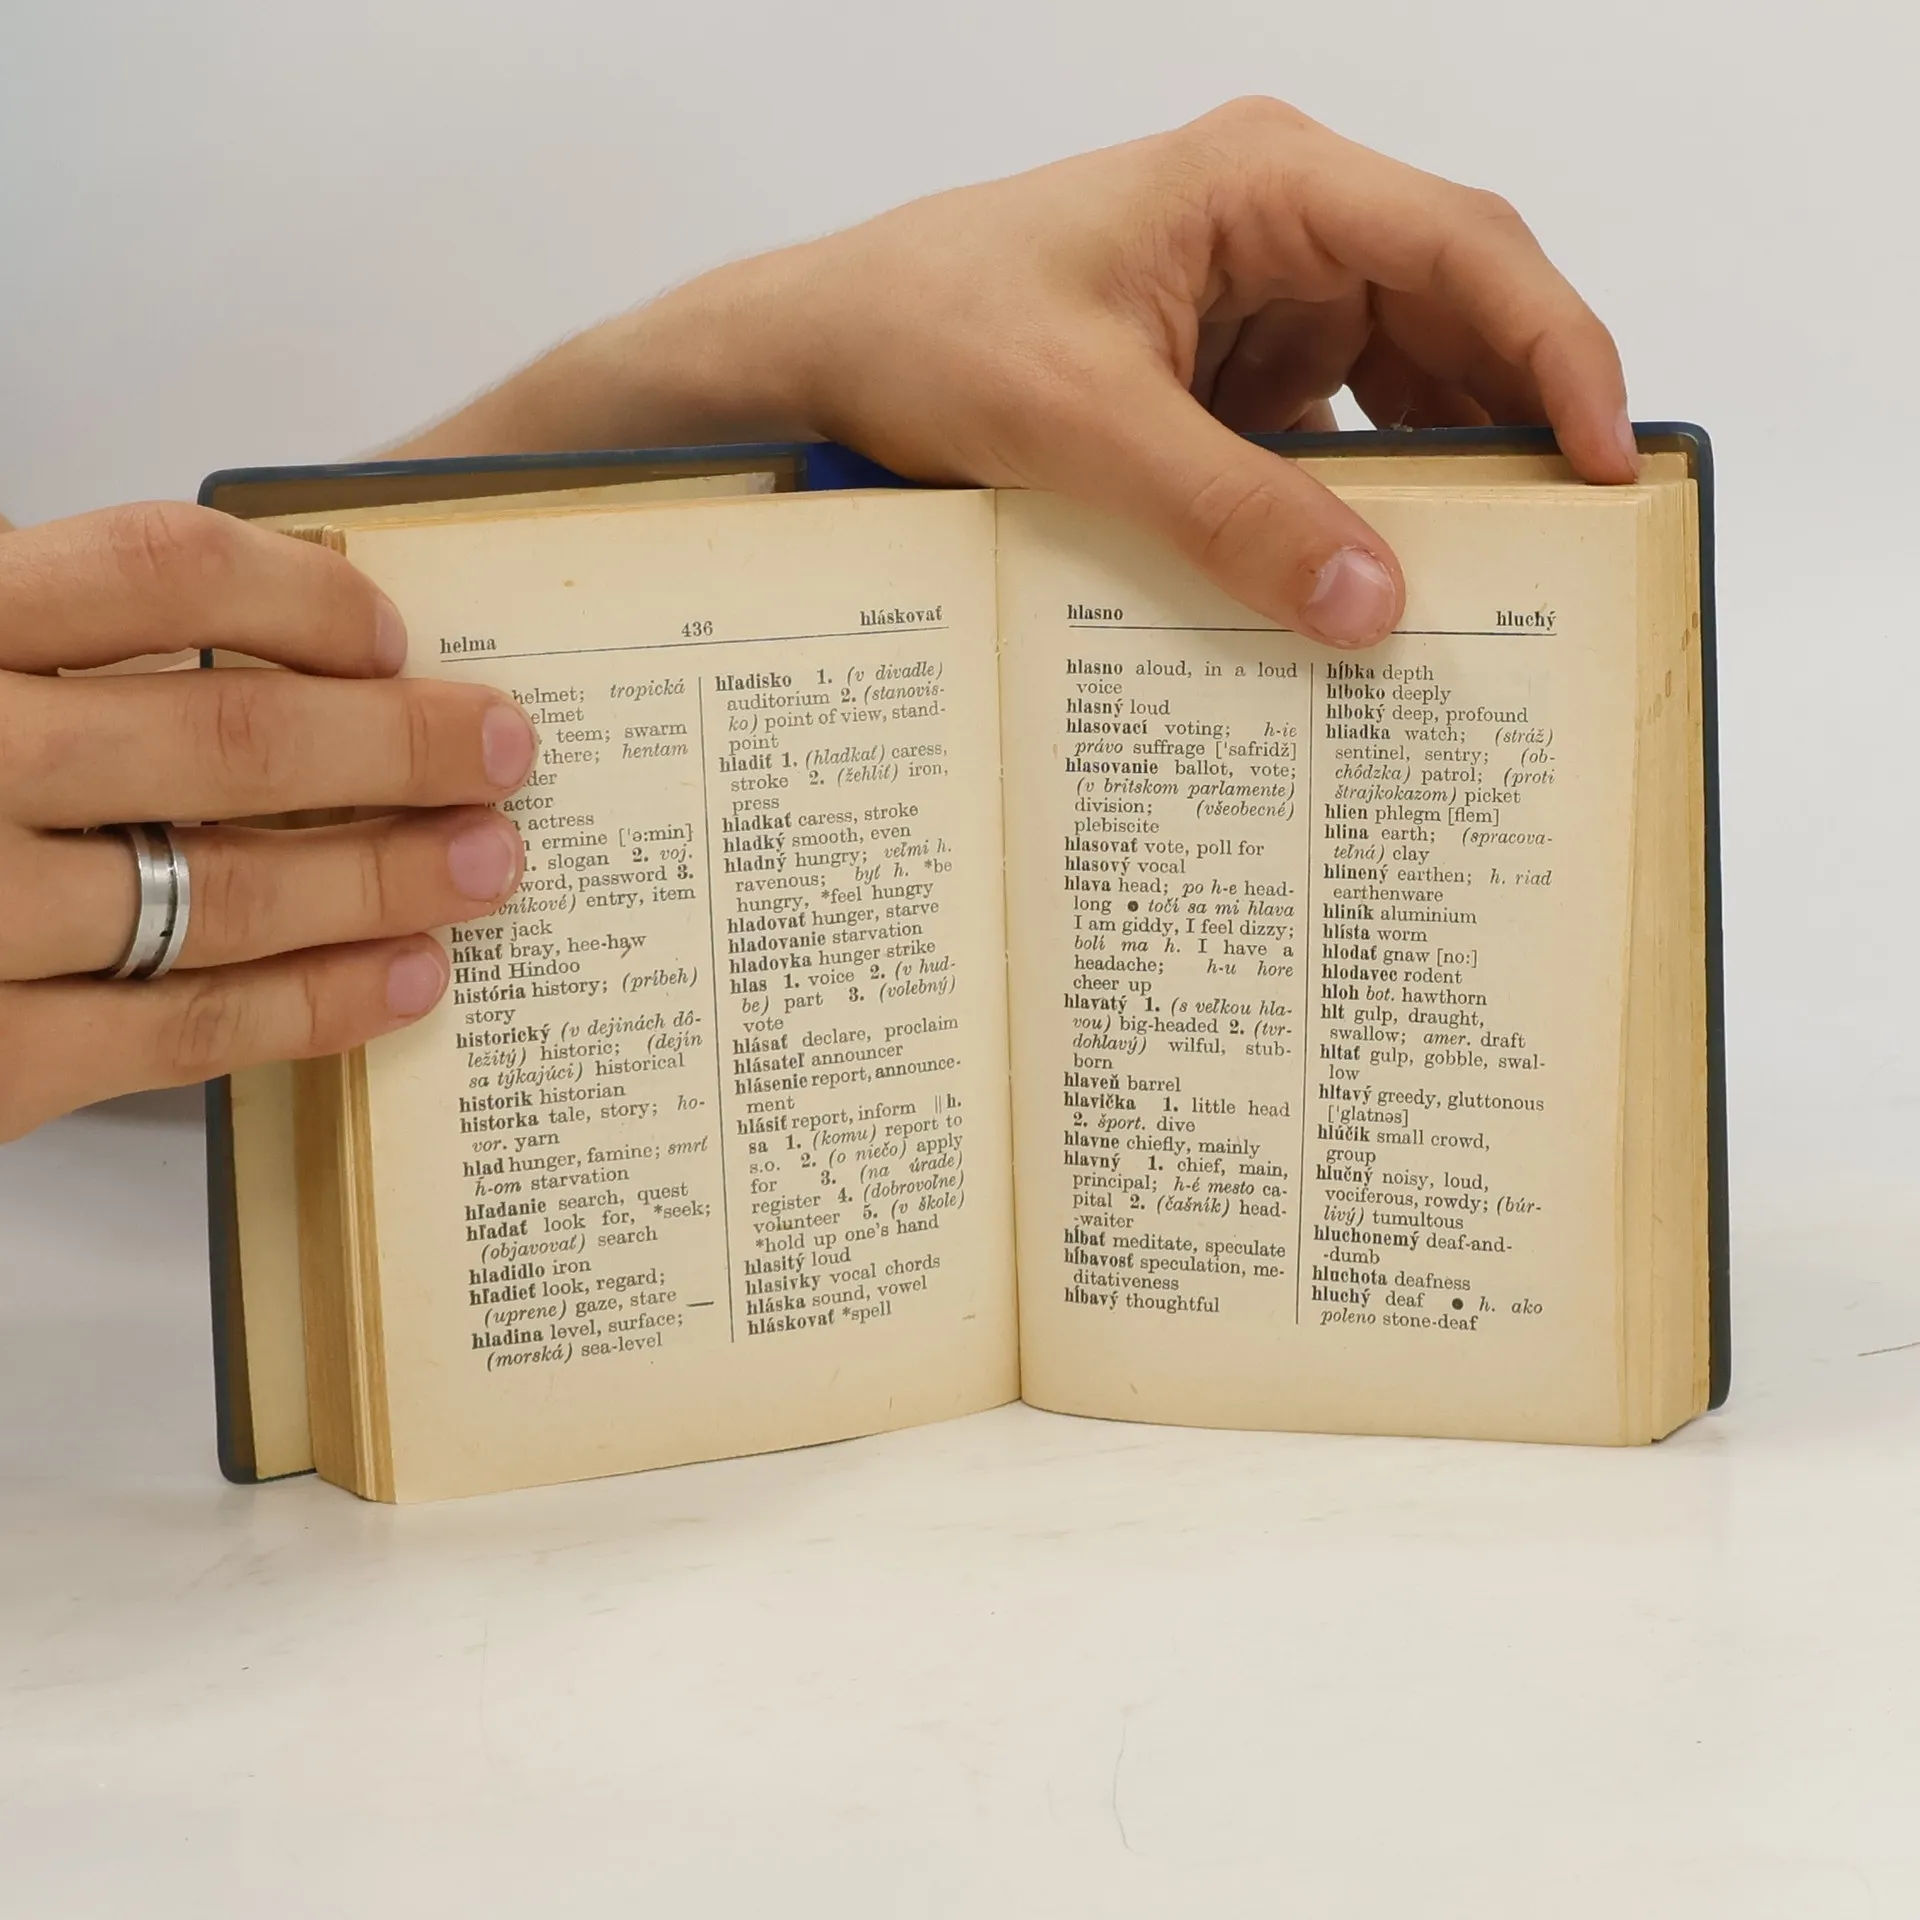 helma 436 hláskovať
helmet; tropická
elmet
teem; swarm
there; hentam
actor
actress
ermine ['ə:min]
1. slogan 2. voj.
word, password 3.
entry, item
hever jack
híkať bray, hee-haw
Hind Hindoo
história history; (príbeh)
story
historický (v dejinách dô-
ležitý) historic; (dejín
sa týkajúci) historical
historik historian
historka tale, story; ho-
vor. yarn
hlad hunger, famine; smrť
h-om starvation
hľadanie search, quest
hľadať look for, *seek;
(objavovať) search
hladidlo iron
hľadieť look, regard;
(uprene) gaze, stare
hladina level, surface;
(morská) sea-level
hľadisko 1. (v divadle)
auditorium 2. (stanovis-
ko) point of view, stand-
point
hladiť 1. (hladkať) caress,
stroke 2. (žehliť) iron,
press
hladkať caress, stroke
hladký smooth, even
hladný hungry; veľmi h.
ravenous; byť h. *be
hungry, *feel hungry
hladovať hunger, starve
hladovanie starvation
hladovka hunger strike
hlas 1. voice 2. (v hud-
be) part 3. (volebný)
vote
hlásať declare, proclaim
hlásateľ announcer
hlásenie report, announce-
ment
hlásiť report, inform || h.
sa 1. (komu) report to
s.o. 2. (o niečo) apply
for 3. (na úrade)
register 4. (dobrovoľne)
volunteer 5. (v škole)
*hold up one's hand
hlasitý loud
hlasivky vocal chords
hláska sound, vowel
hláskovať *spell
hlasno hluchý
hlasno aloud, in a loud
voice
hlasný loud
hlasovací voting; h-ie
právo suffrage ['safridž]
hlasovanie ballot, vote;
(v britskom parlamente)
division; (všeobecné)
plebiscite
hlasovať vote, poll for
hlasový vocal
hlava head; po h-e head-
long ● točí sa mi hlava
I am giddy, I feel dizzy;
bolí ma h. I have a
headache; h-u hore
cheer up
hlavatý 1. (s veľkou hla-
vou) big-headed 2. (tvr-
dohlavý) wilful, stub-
born
hlaveň barrel
hlavička 1. little head
2. šport. dive
hlavne chiefly, mainly
hlavný 1. chief, main,
principal; h-é mesto ca-
pital 2. (čašník) head-
-waiter
hĺbať meditate, speculate
hĺbavosť speculation, me-
ditativeness
hĺbavý thoughtful
hĺbka depth
hlboko deeply
hlboký deep, profound
hliadka watch; (stráž)
sentinel, sentry; (ob-
chôdzka) patrol; (proti
štrajkokazom) picket
hlien phlegm [flem]
hlina earth; (spracova-
teľná) clay
hlinený earthen; h. riad
earthenware
hliník aluminium
hlísta worm
hlodať gnaw [no:]
hlodavec rodent
hloh bot. hawthorn
hlt gulp, draught,
swallow; amer. draft
hltať gulp, gobble, swal-
low
hltavý greedy, gluttonous
['glatnəs]
hlúčik small crowd,
group
hlučný noisy, loud,
vociferous, rowdy; (búr-
livý) tumultous
hluchonemý deaf-and-
-dumb
hluchota deafness
hluchý deaf ● h. ako
poleno stone-deaf